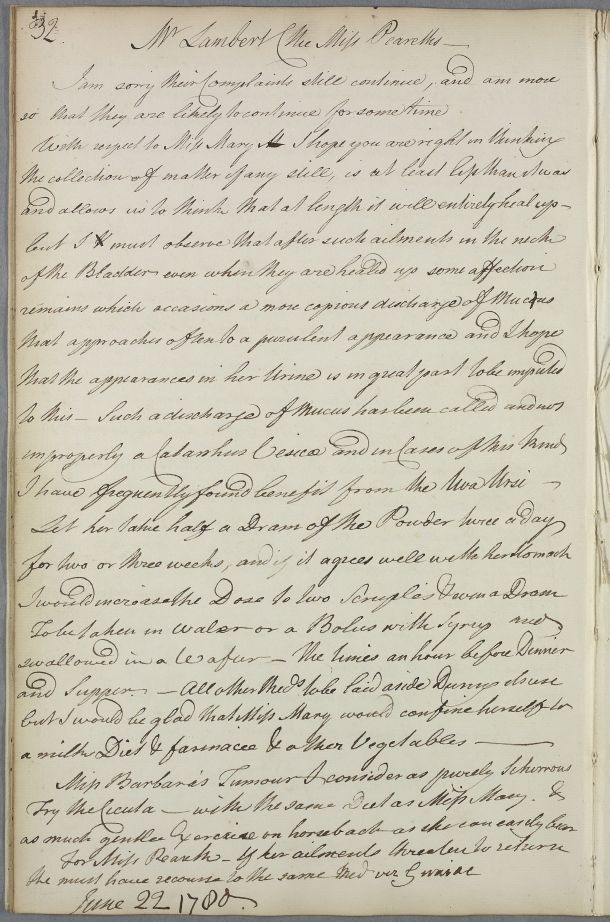 32.
Mr Lambert (the Miss Peareths —
I am sorry their Complaints still continue, and am more
so that they are likely to continue for some time
With respect to Miss Mary I hope you are right in thinking
the collection of matter if any still, is at least less than it was
and allows us to think that at length it will entirely heal up —
but I must observe that after such ailments in the neck
of the Bladder even when they are healed up some affection
remains which occasions a more copious discharge of Mucus
that approaches often to a purulent appearance and I hope
that the appearances in her Urine is in great part to be imputed
to this — Such a discharge of Mucus has been called and not
improperly a Catarrhus Vesicæ and in Cases of this kind
I have frequently found benefit from the Uva Ursi —
Let her take half a Dram of the Powder twice a day
for two or three weeks, and if it agrees well with her Stomach
I would increase the Dose to two Scruples & even a Dram
To be taken in water or a Bolus with Syrup and
swallowed in a Wafur — the times an hour before Dinner
and Supper. — All other Meds to be laid aside During its use
but I would be glad that Miss Mary would confine herself to
a milk Diet & farinacee & other Vegetables —
Miss Barbara's Tumour I consider as purely Schirrous
Try the Cicuta — with the same Diet as Miss Mary. &
as much gentle Exercise on horseback as she can easily bear
For Miss Peareth — If her ailments threaten to return
She must have recourse to the same Med viz Guaiac
June 22 1780.